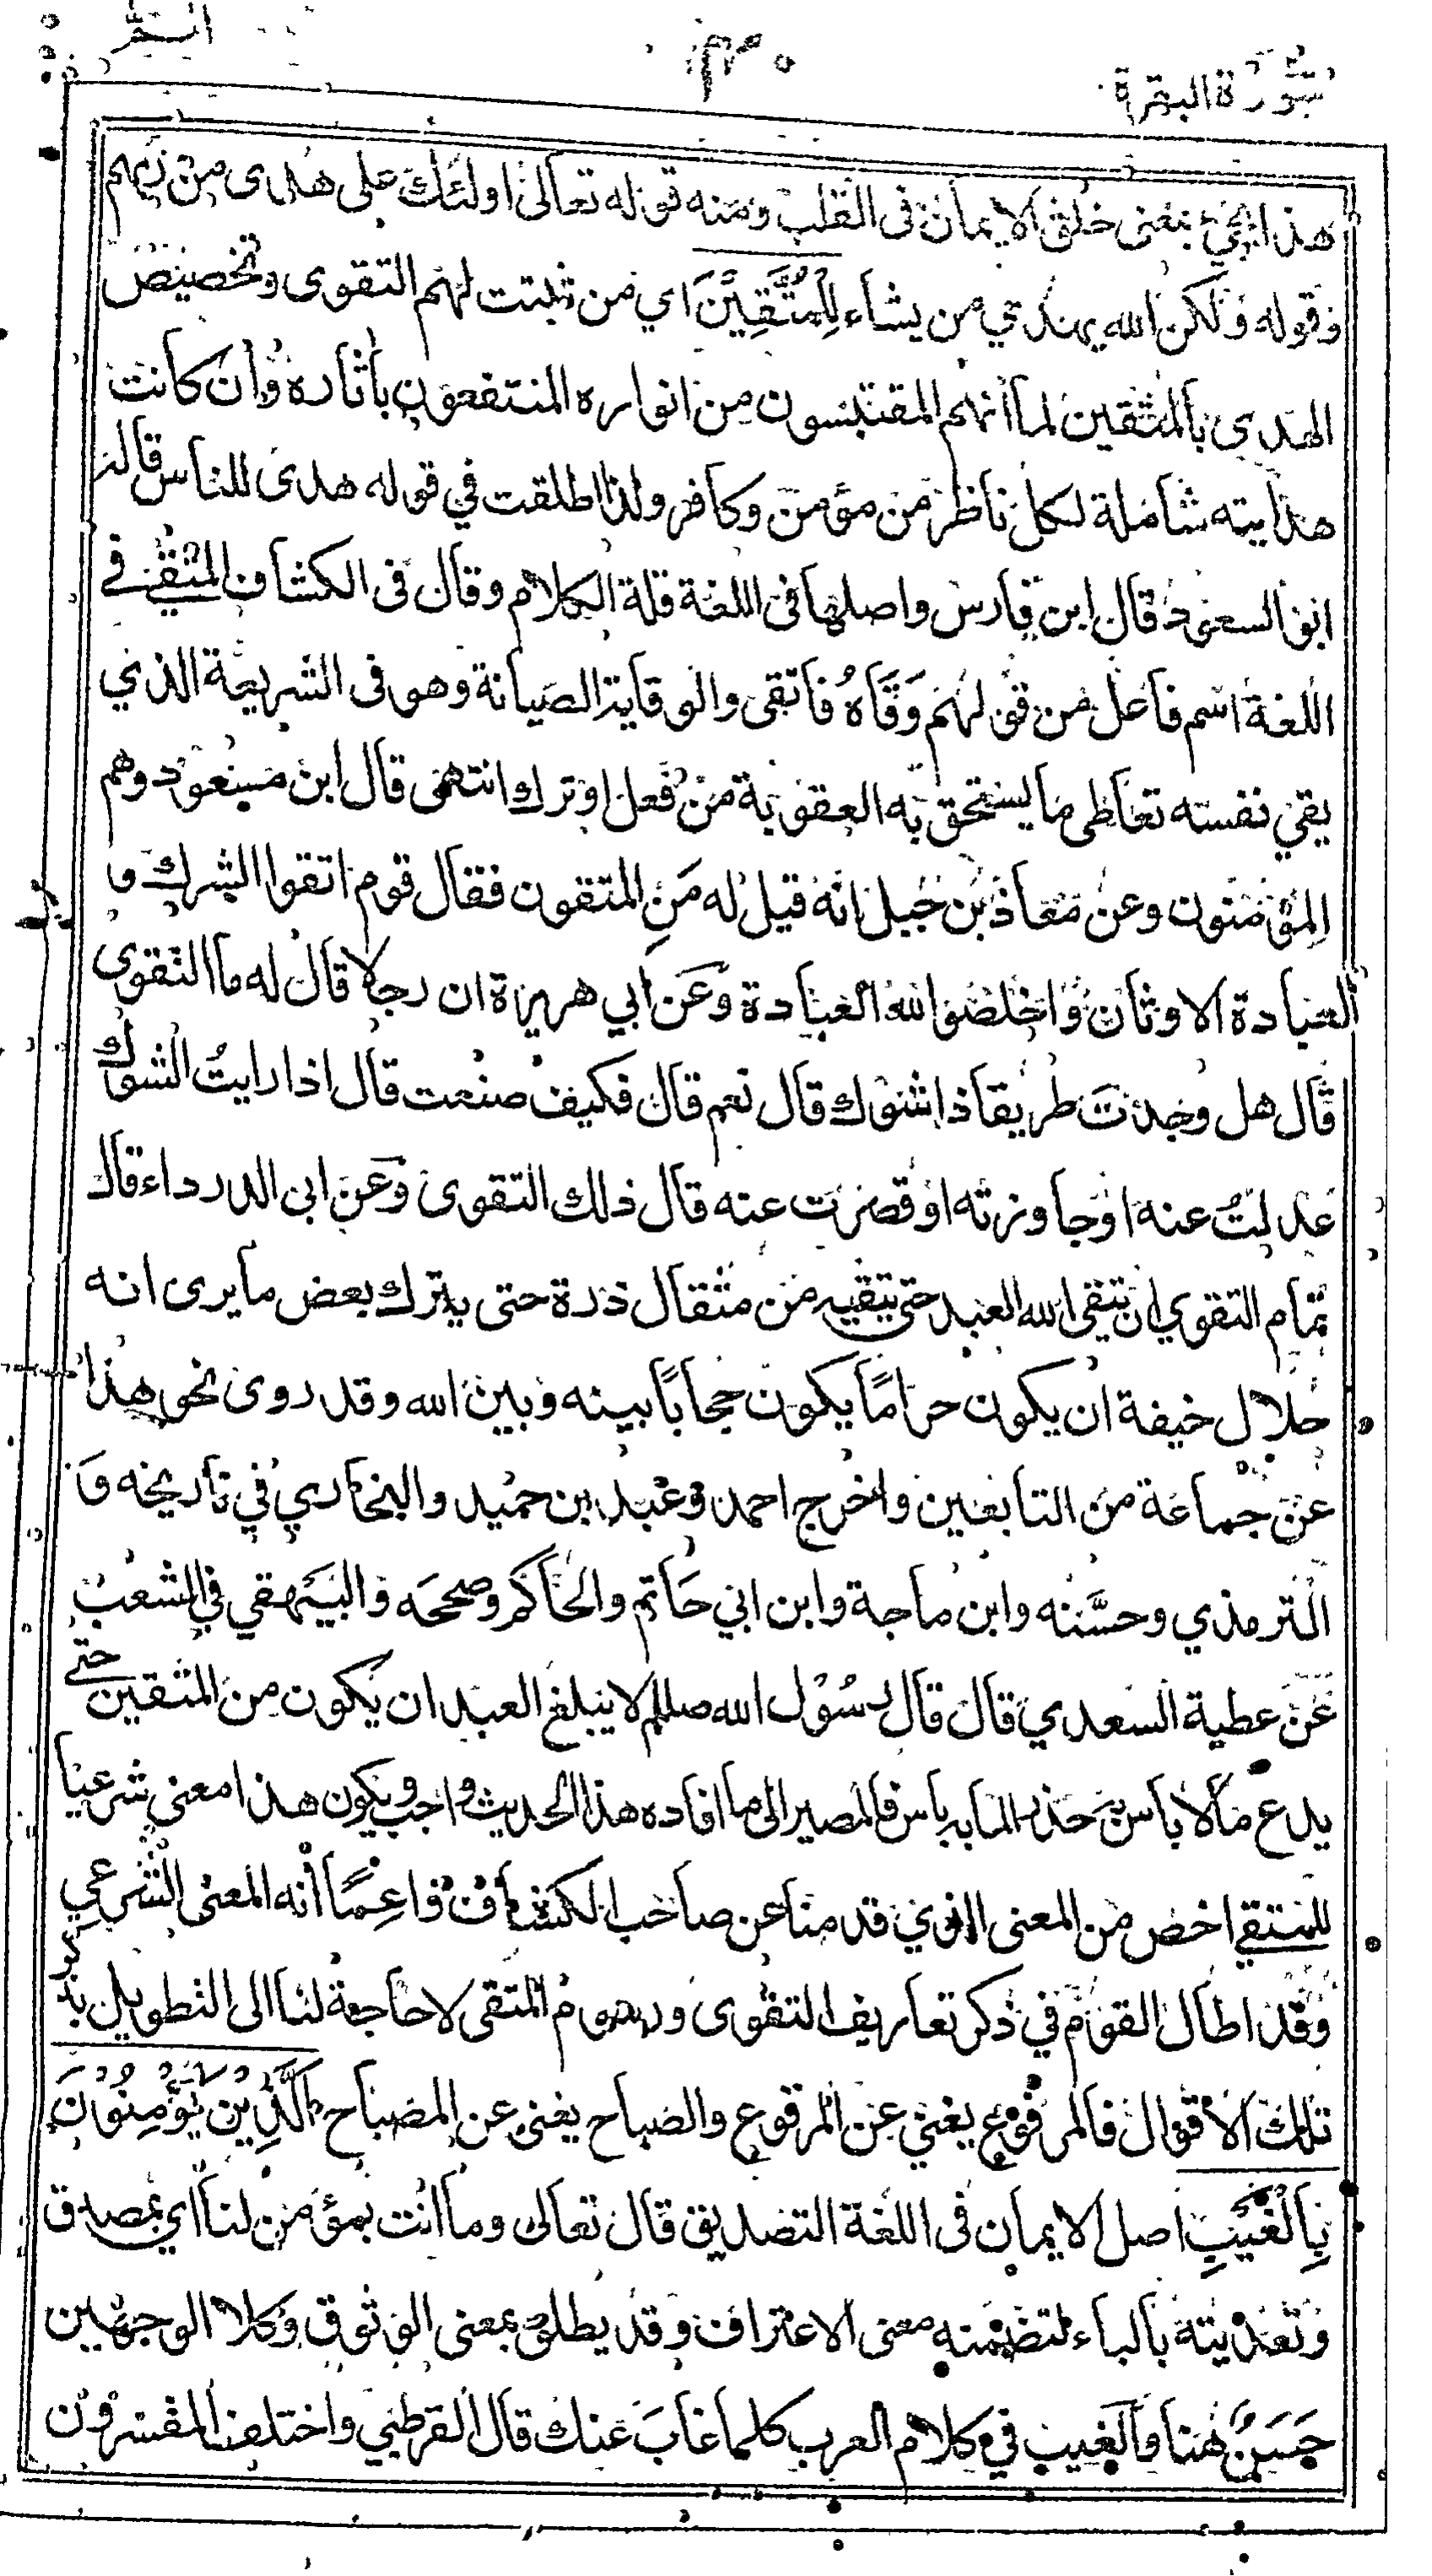 سورة البقرة ٣٠ الٓمّٓ
هذا يجيء بمعنى خلق الايمان فى القلب ومنه قوله تعالى اولئك على هدى من ربهم
وقوله ولكن الله يهدي من يشاء لِلْمُتَّقِيْنَ اي من ثبتت لهم التقوى وتخصيص
الهدى بالمتقين لما انهم المقتبسون من انواره المنتفعون بآثاره وان كانت
هدايته شاملة لكل ناظر من مؤمن وكافر ولذا اطلقت في قوله هدى للناس قاله
ابو السعود قال ابن فارس واصلها فى اللغة قلة الكلام وقال فى الكشاف المتقي في
اللغة اسم فاعل من قولهم وَقَاهُ فاتقى والوقاية الصيانة وهو فى الشريعة الذي
يقي نفسه تعاطى ما يستحق به العقوبة من فعل او ترك انتهى قال ابن مسعود وهم
المؤمنون وعن معاذ بن جبل انه قيل له مَنِ المتقون فقال قوم اتقوا الشرك و
العبادة الاوثان واخلصوا لله العبادة وعن ابي هريرة ان رجلا قال له ما التقوى
قال هل وجدت طريقا ذا شوك قال نعم قال فكيف صنعت قال اذا رايتُ الشوك
عدلتُ عنه او جاوزته او قصرت عنه قال ذلك التقوى وعن ابى الدرداء قال
تمام التقوي ان يتقى الله العبد حتى يتقيه من مثقال ذرة حتى يترك بعض ما يرى انه
حلال خيفة ان يكون حراماً يكون حجاباً بينه وبين الله وقد روى نحو هذا
عن جماعة من التابعين واخرج احمد وعبد ابن حميد والبخاري في تاريخه و
الترمذي وحسَّنه وابن ماجة وابن ابي حاتم والحاكم وصححه والبيهقي في الشعب
عن عطية السعدي قال قال رسول الله صللم لا يبلغ العبد ان يكون من المتقين حتى
يدع ما لا بأس به حذرا لما به بأس فالمصير الى ما افاده هذا الحديث واجب ويكون هذا معنى شرعيا
للمتقي اخص من المعنى الذي قدمنا عن صاحب الكشاف زاعِماً انه المعنى الشرعي
وقد اطال القوم في ذكر تعاريف التقوى ورسوم المتقى لا حاجة لنا الى التطويل بذكر
تلك الاقوال فالمرفوع يغني عن المرقوع والصباح يغني عن المصباح الَّذِيْنَ يُؤْمِنُوْنَ
بِالْغَيْبِ اصل الايمان فى اللغة التصديق قال تعالى وما انت بمؤمن لنا اي بمصدق
وتعديته بالباء لتضمنه معنى الاعتراف وقد يطلق بمعنى الوثوق وكلا الوجهين
حَسَنٌ هنا والغيب في كلام العرب كلما غابَ عنك قال القرطبي واختلف المفسرون